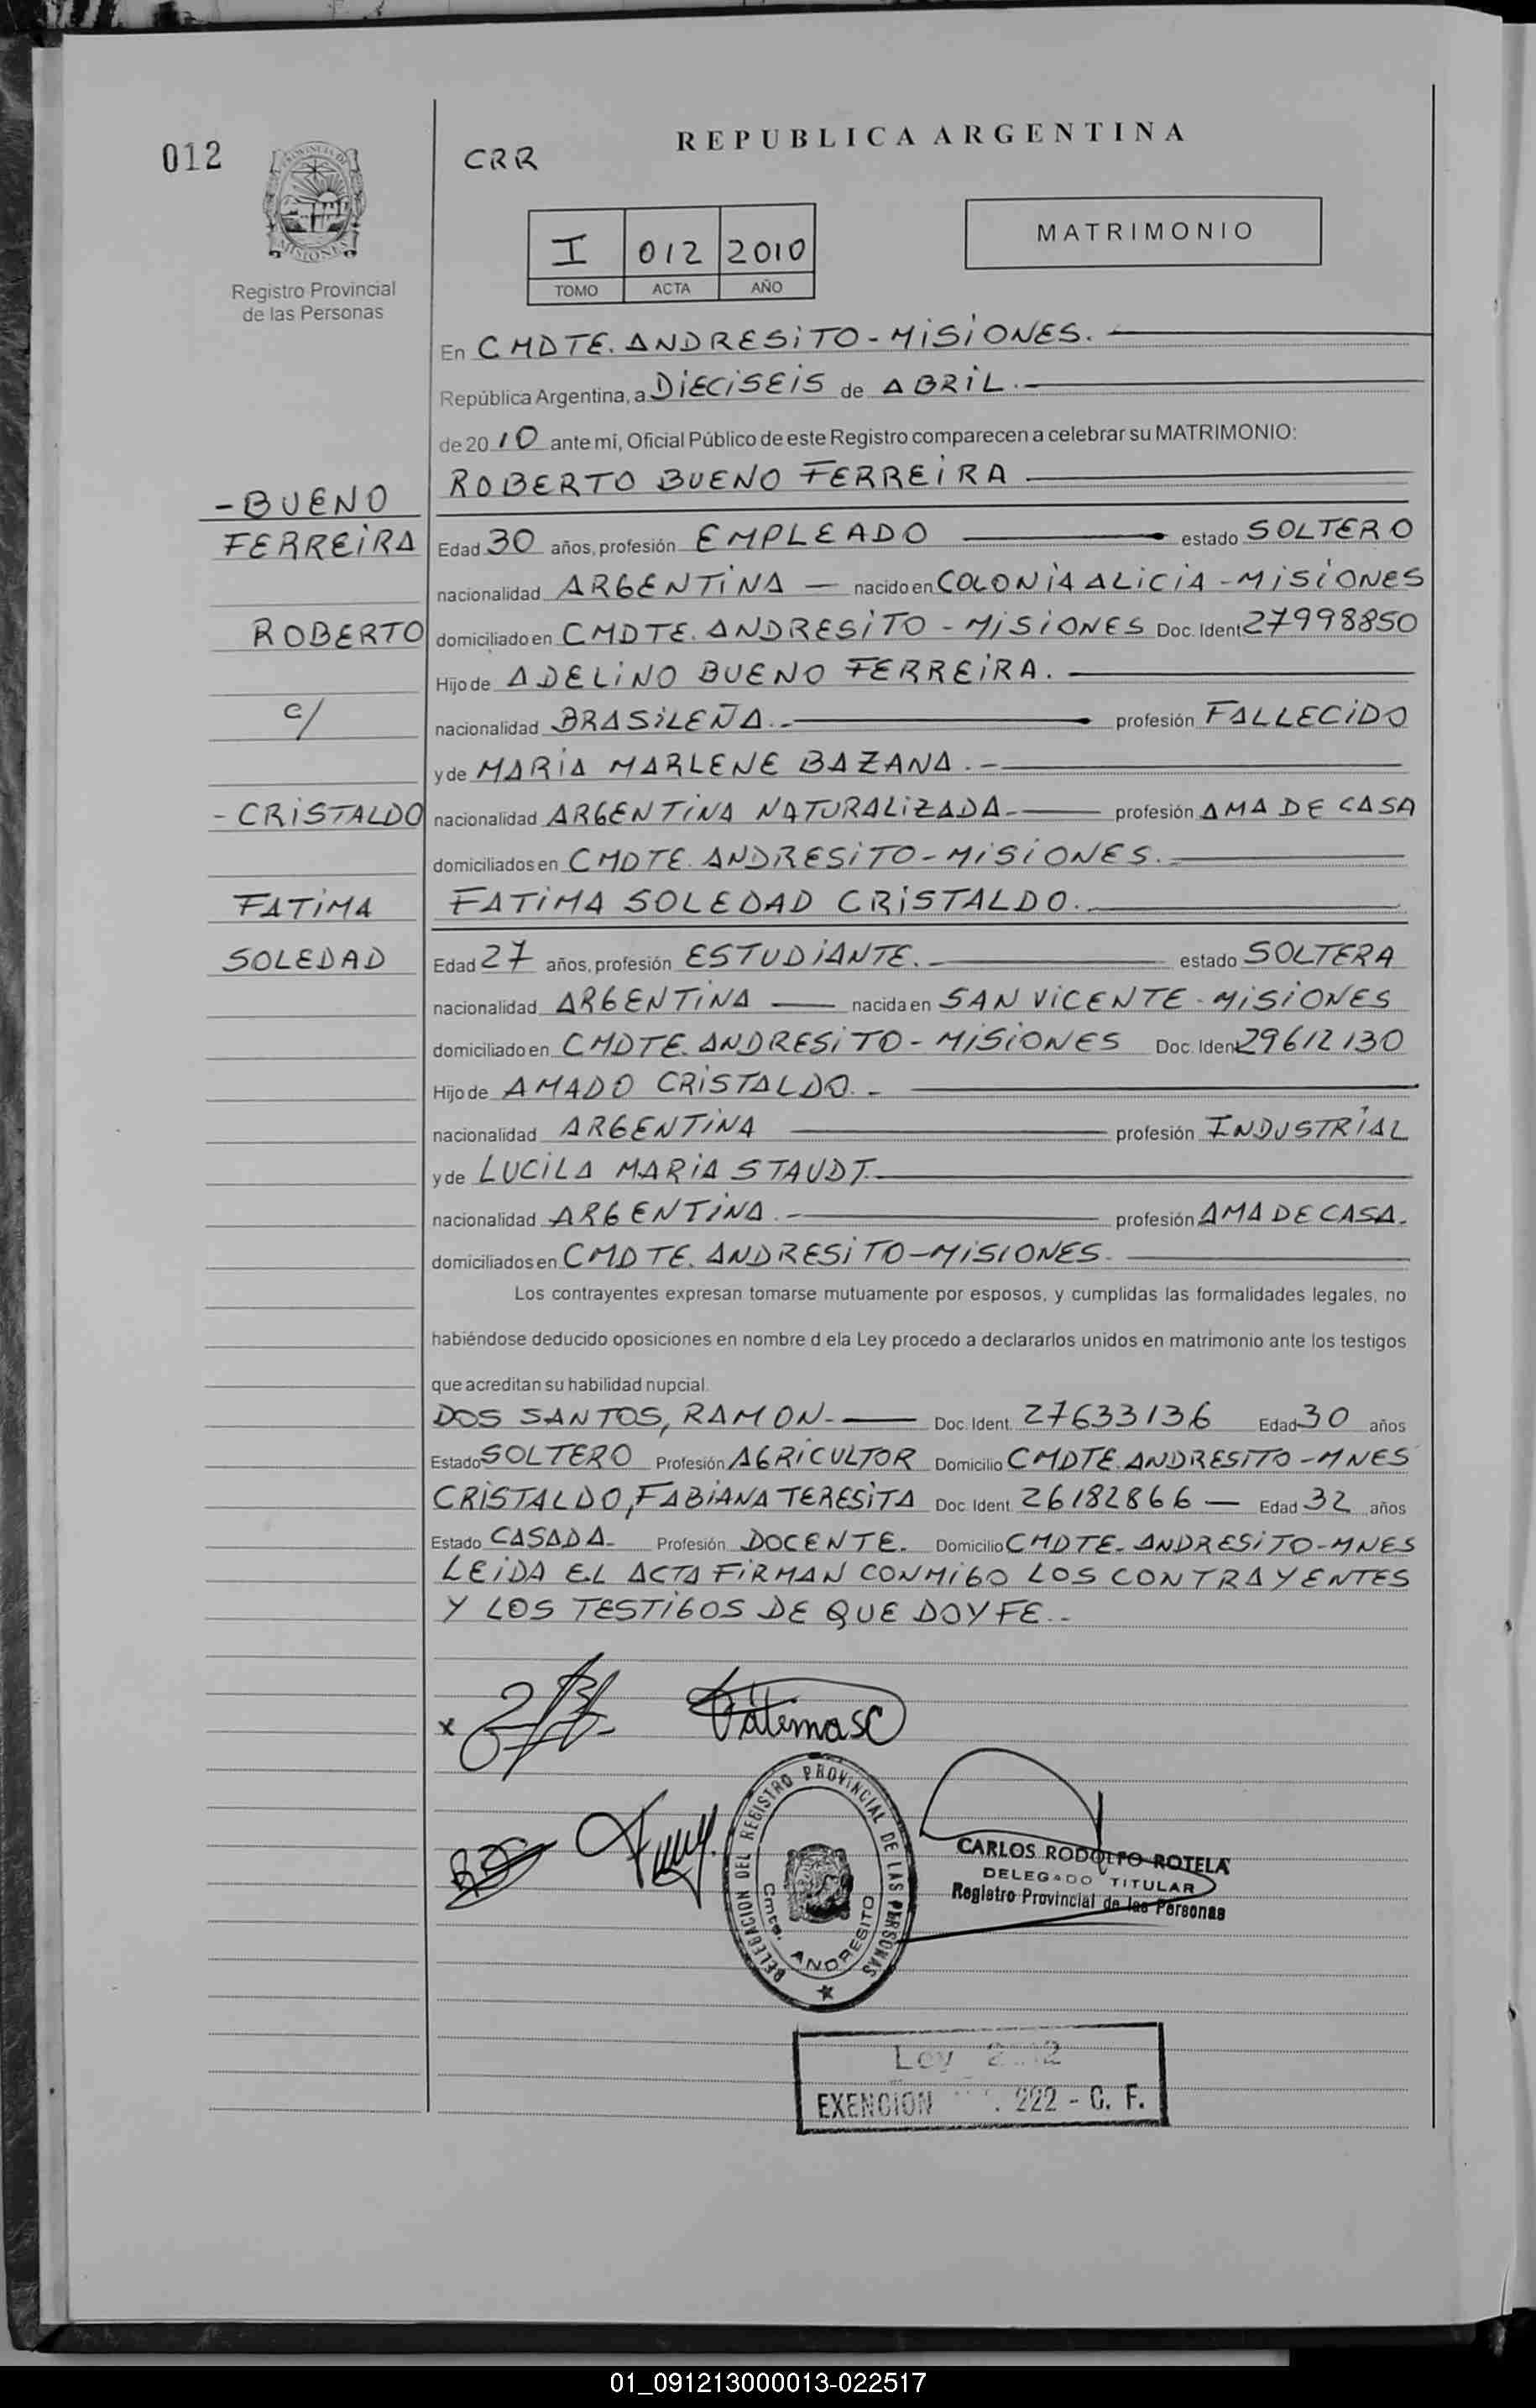 012
PROVINCIA DE
MISIONES
Registro Provincial
de las Personas
CRR
REPUBLICA ARGENTINA
I 012 2010
TOMO ACTA AÑO
MATRIMONIO
En CMDTE. ANDRESITO - MISIONES.
República Argentina, a DIECISEIS de ABRIL.
de 2010 ante mí, Oficial Público de este Registro comparecen a celebrar su MATRIMONIO:
ROBERTO BUENO FERREIRA
- BUENO
FERREIRA
ROBERTO
c/
- CRISTALDO
FATIMA
SOLEDAD
Edad 30 años, profesión EMPLEADO estado SOLTERO
nacionalidad ARGENTINA — nacido en COLONIA ALICIA - MISIONES
domiciliado en CMDTE. ANDRESITO - MISIONES Doc. Ident 27998850
Hijo de ADELINO BUENO FERREIRA.
nacionalidad BRASILEÑA.- profesión FALLECIDO
y de MARIA MARLENE BAZANA.-
nacionalidad ARGENTINA NATURALIZADA.- profesión AMA DE CASA
domiciliados en CMDTE. ANDRESITO - MISIONES.-
FATIMA SOLEDAD CRISTALDO.-
Edad 27 años, profesión ESTUDIANTE.- estado SOLTERA
nacionalidad ARGENTINA — nacida en SAN VICENTE - MISIONES
domiciliado en CMDTE. ANDRESITO - MISIONES Doc. Ident 29612130
Hijo de AMADO CRISTALDO.-
nacionalidad ARGENTINA profesión INDUSTRIAL
y de LUCILA MARIA STAUDT.
nacionalidad ARGENTINA.- profesión AMA DE CASA.
domiciliados en CMDTE. ANDRESITO - MISIONES.
Los contrayentes expresan tomarse mutuamente por esposos, y cumplidas las formalidades legales, no
habiéndose deducido oposiciones en nombre d ela Ley procedo a declararlos unidos en matrimonio ante los testigos
que acreditan su habilidad nupcial.
DOS SANTOS, RAMON.- Doc. Ident. 27633136 Edad 30 años
Estado SOLTERO Profesión AGRICULTOR Domicilio CMDTE. ANDRESITO - MNES
CRISTALDO, FABIANA TERESITA Doc. Ident. 26182866 — Edad 32 años
Estado CASADA. Profesión DOCENTE. Domicilio CMDTE. ANDRESITO - MNES
LEIDA EL ACTA FIRMAN CONMIGO LOS CONTRAYENTES
Y LOS TESTIGOS DE QUE DOY FE.-
x
Fátima SC
DELEGACION DEL REGISTRO PROVINCIAL DE LAS PERSONAS
Cmte. ANDRESITO
CARLOS RODOLFO ROTELA
DELEGADO TITULAR
Registro Provincial de las Personas
Ley
EXENCION 222 - C. F.
01_091213000013-022517